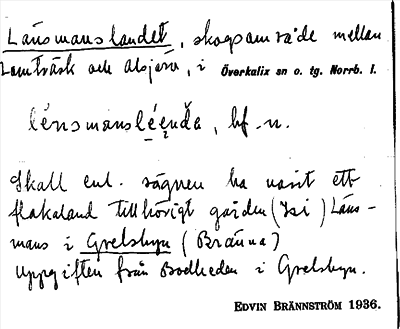 Länsmanslandet, skogsområde mellan
Lomträsk och Alsjärv, i Överkalix sn o. tg. Norrb. l.
lénsmansléenda, bf. n.
Skall enl. sägnen ha varit ett
flakaland tillhörigt gården (Isi) Läns-
mans i Grelsbyn (Bränna)
Uppgiften från Bodheden i Grelsbyn.
EDVIN BRÄNNSTRÖM 1936.